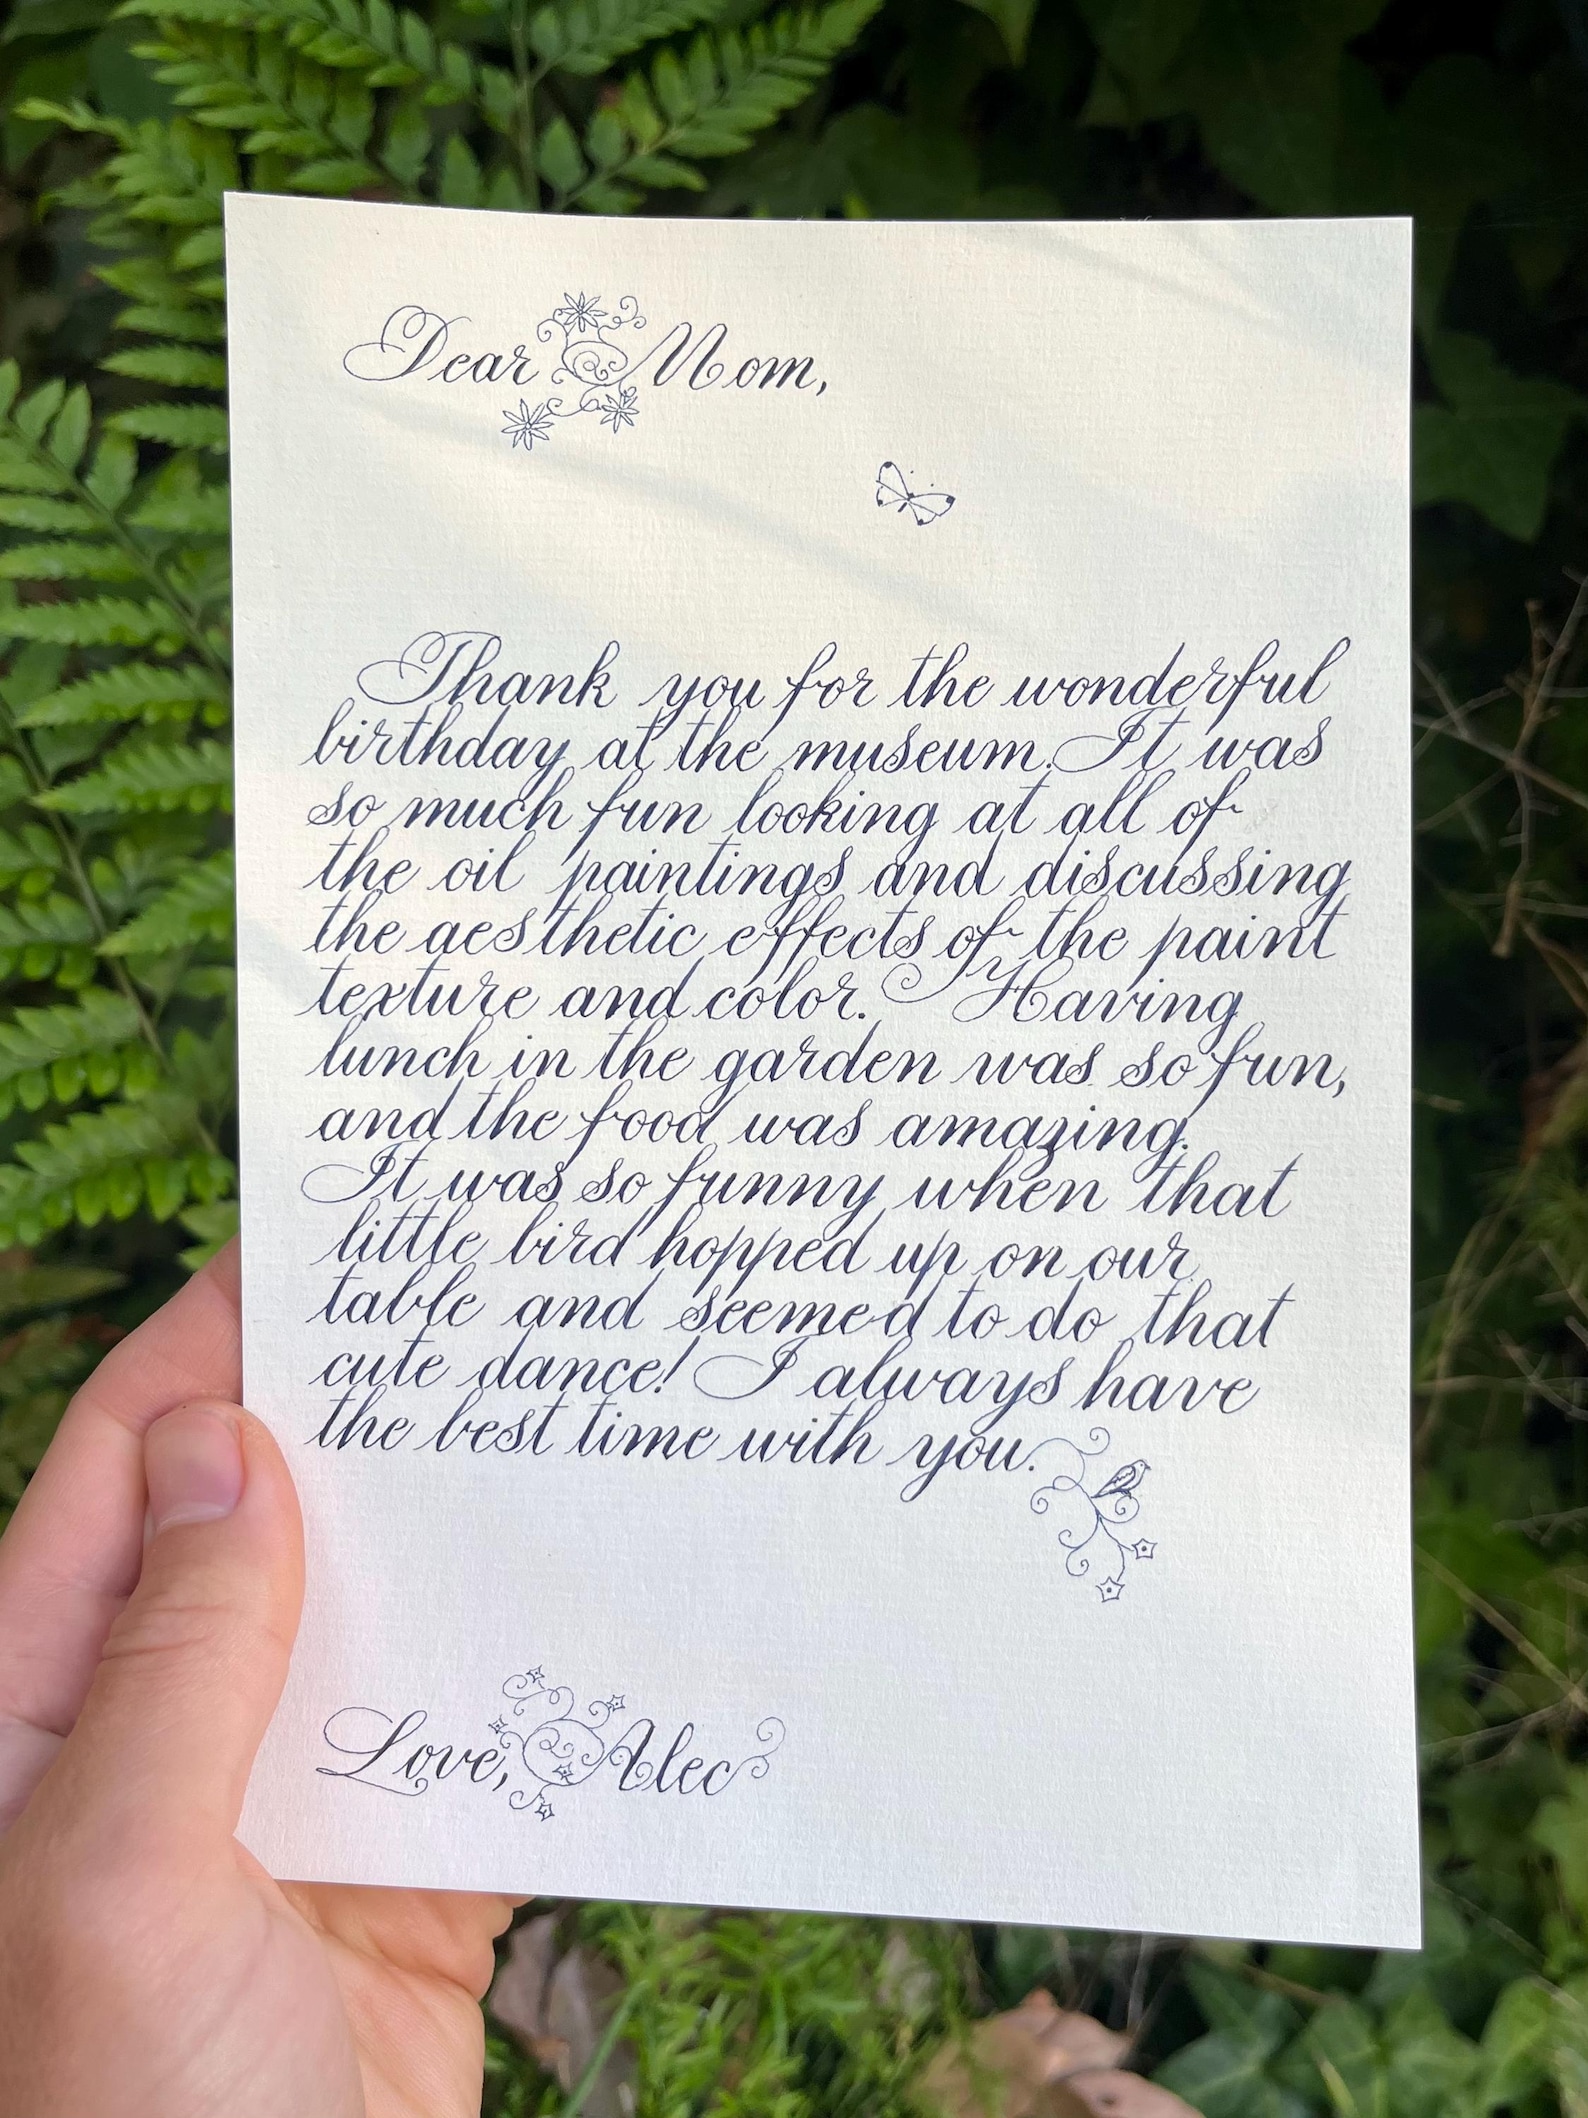 Dear Mom,
Thank you for the wonderful
birthday at the museum. It was
so much fun looking at all of
the oil paintings and discussing
the aesthetic effects of the paint
texture and color. Having
lunch in the garden was so fun,
and the food was amazing.
It was so funny when that
little bird hopped up on our
table and seemed to do that
cute dance! I always have
the best time with you.
Love, Alec